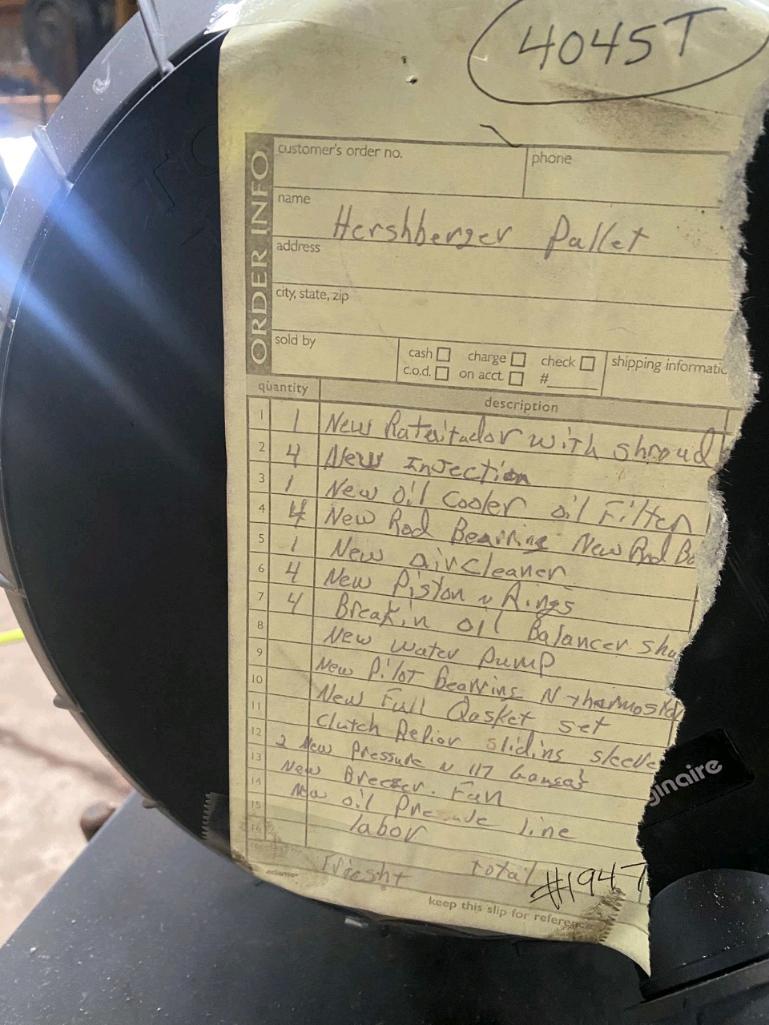 4045T
customer's order no. phone
ORDER INFO.
name Hershberger Pallet
address
city, state, zip
sold by cash charge check shipping informatic
c.o.d. on acct #
quantity description
1 1 New Rateitador with shroud
2 4 New Injection
3 1 New oil Cooler oil Filter
4 4 New Rod Bearing New Rod Bo
5 1 New aircleaner
6 4 New Piston N Rings
7 4 Breakin oil Balancer sha
8 New water pump
9 New Pilot Bearring N thermosta
10 New Full Gasket set
11 Clutch Repior sliding sleeve
12 2 New Pressure N
13 New Breezer. Fan
14 New oil line
15 labor
16 total #1947
keep this slip for reference
ginaire